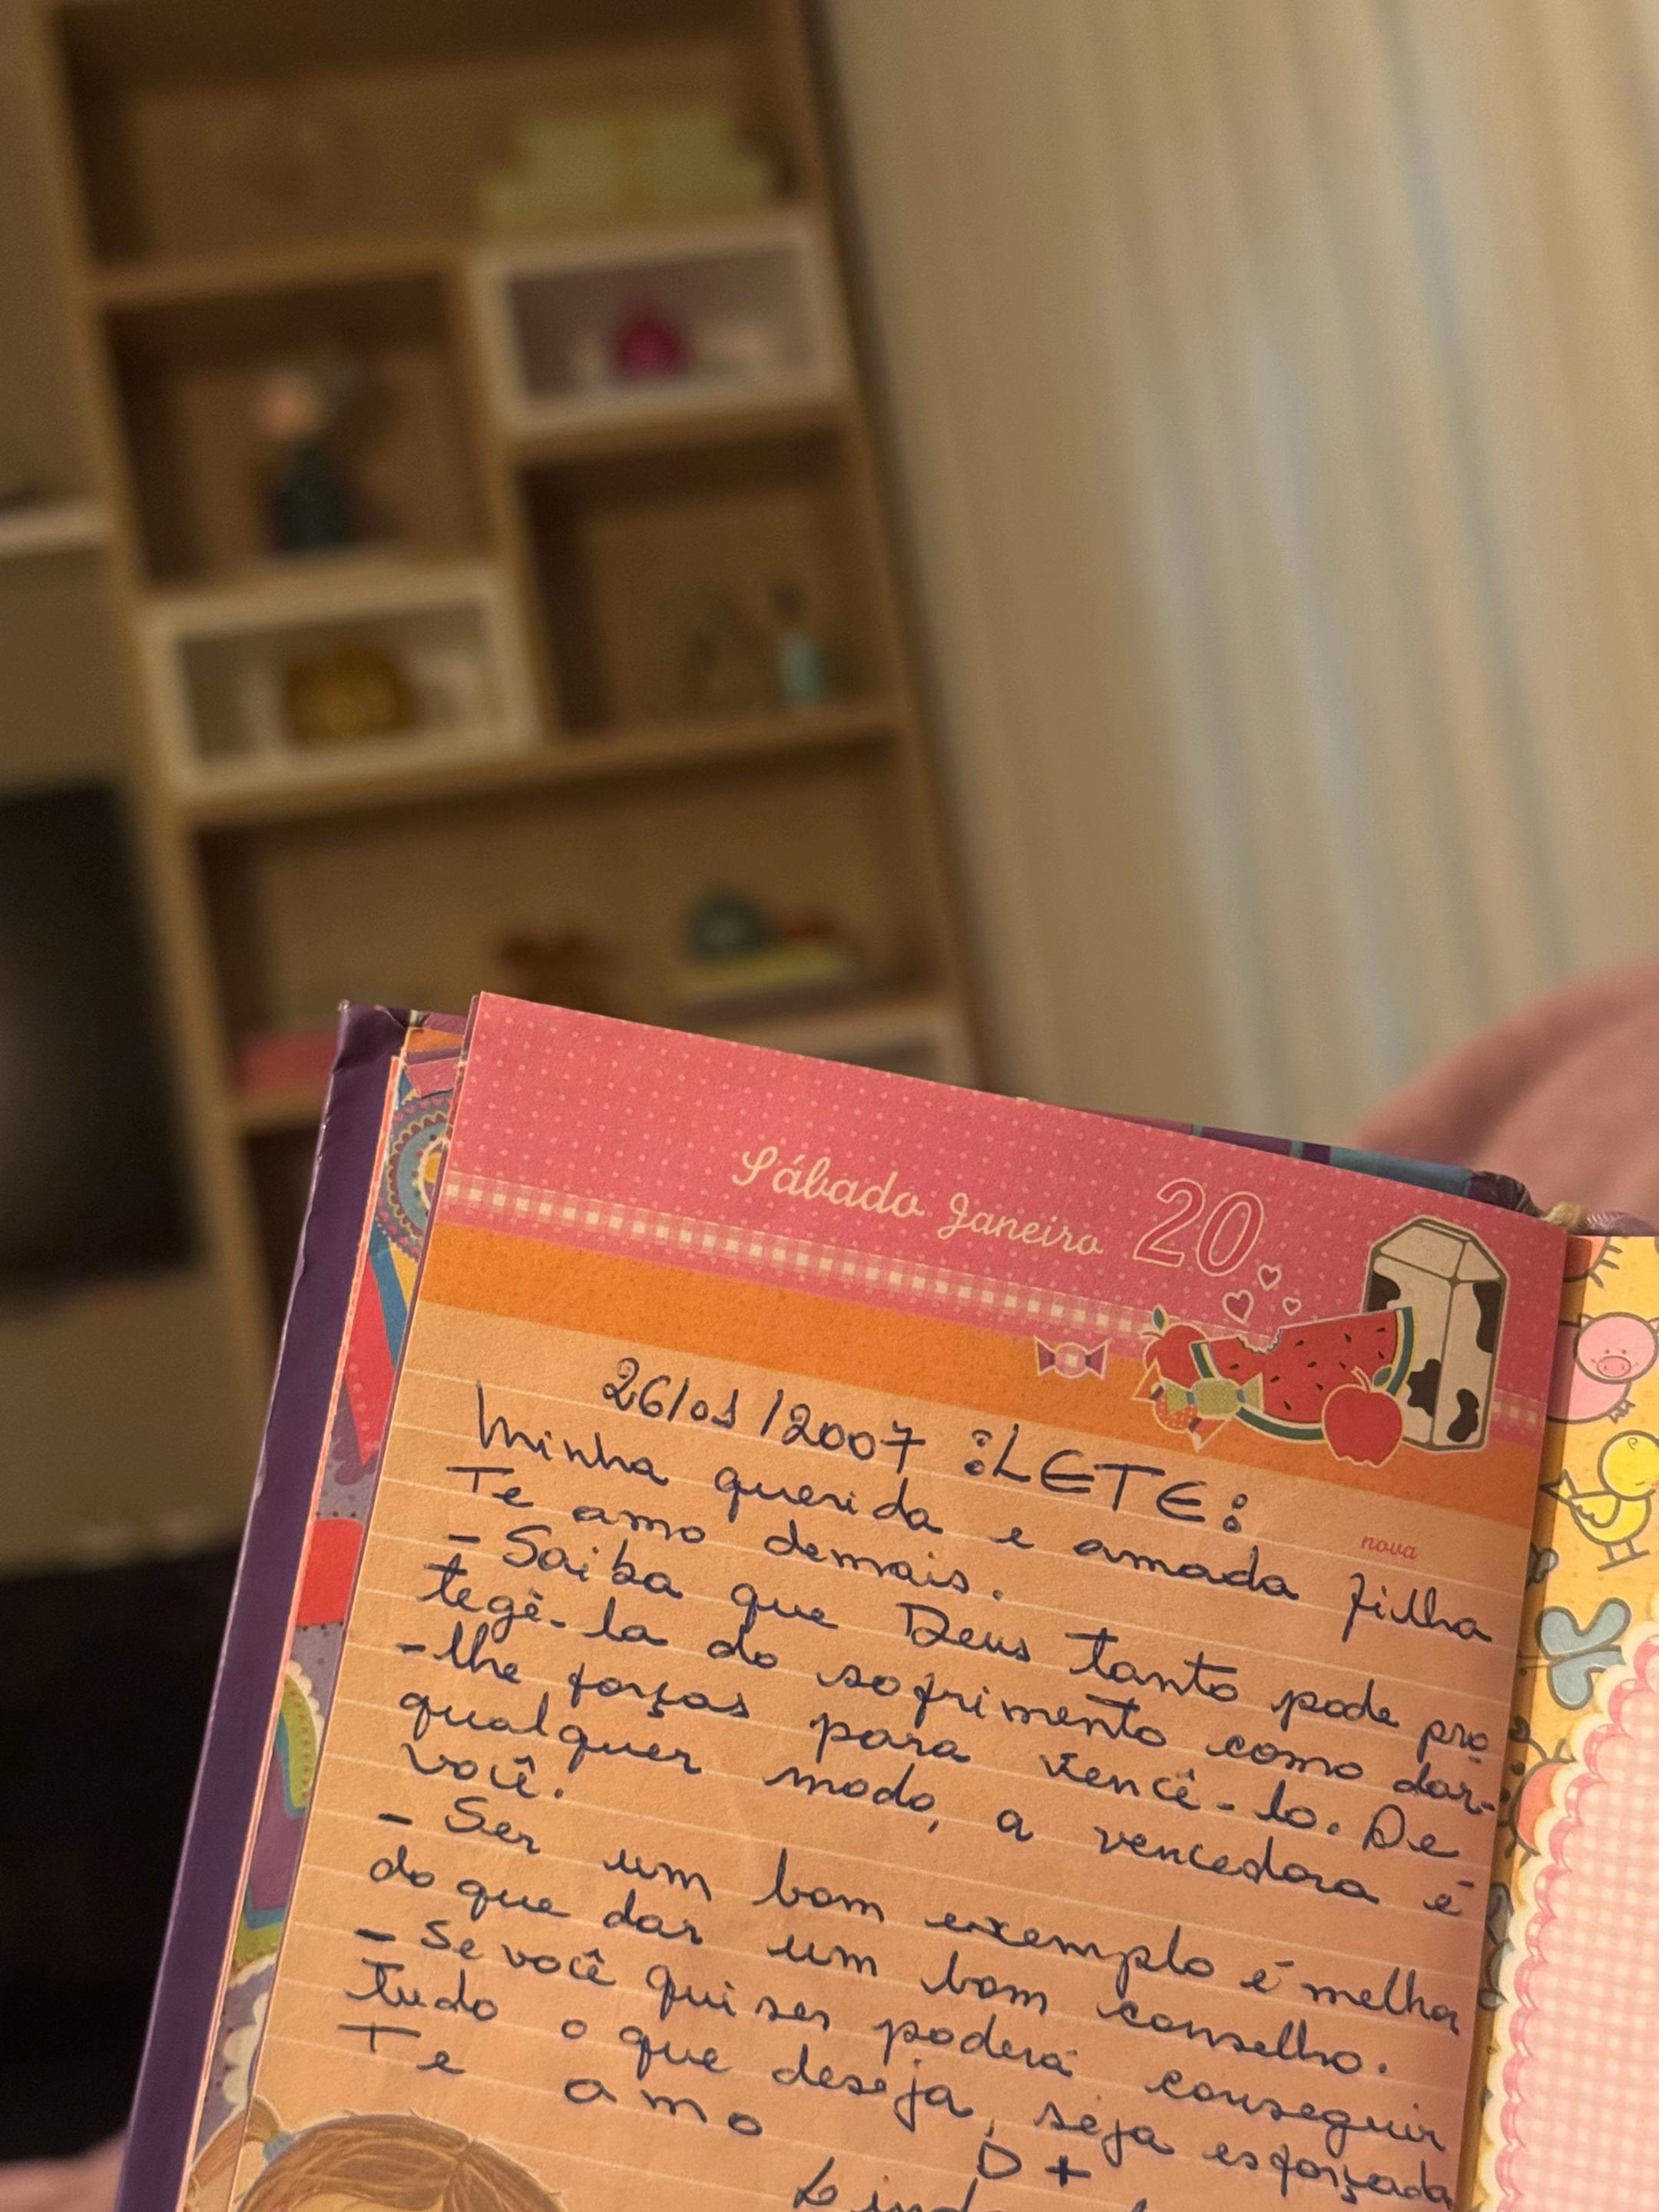 Sábado Janeiro 20
26/01/2007 :LETE:
nova
Minha querida e amada filha
Te amo demais.
- Saiba que Deus tanto pode pro
tegê-la do sofrimento como dar-
-lhe forças para vencê-lo. De
qualquer modo, a vencedora é
você.
- Ser um bom exemplo é melhor
do que dar um bom conselho.
- Se você quiser poderá conseguir
tudo o que deseja, seja esforçada
Te amo D+